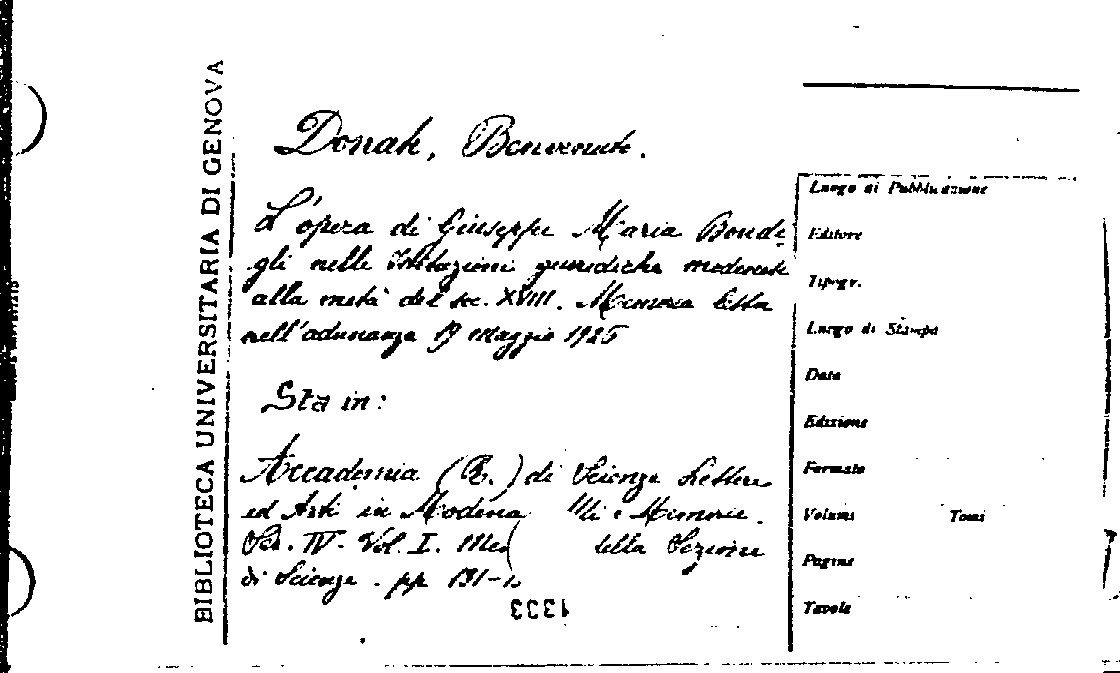 BIBLIOTECA UNIVERSITARIA DI GENOVA
Donati, Benvenuto.
L'opera di Giuseppe Maria Bonde-
gli nelle Istituzioni giuridiche modenesi
alla metà del sec. XVIII. Memoria letta
nell'adunanza 19 Maggio 1925
Sta in:
Accademia (R.) di Scienze Lettere
ed Arti in Modena Atti e Memorie.
Ser. IV. Vol. I. della Sezione
di Scienze. pp 131-
1333
Luogo di Pubblicazione
Editore
Tipogr.
Luogo di Stampa
Data
Edizione
Formato
Volumi Tomi
Pagine
Tavole